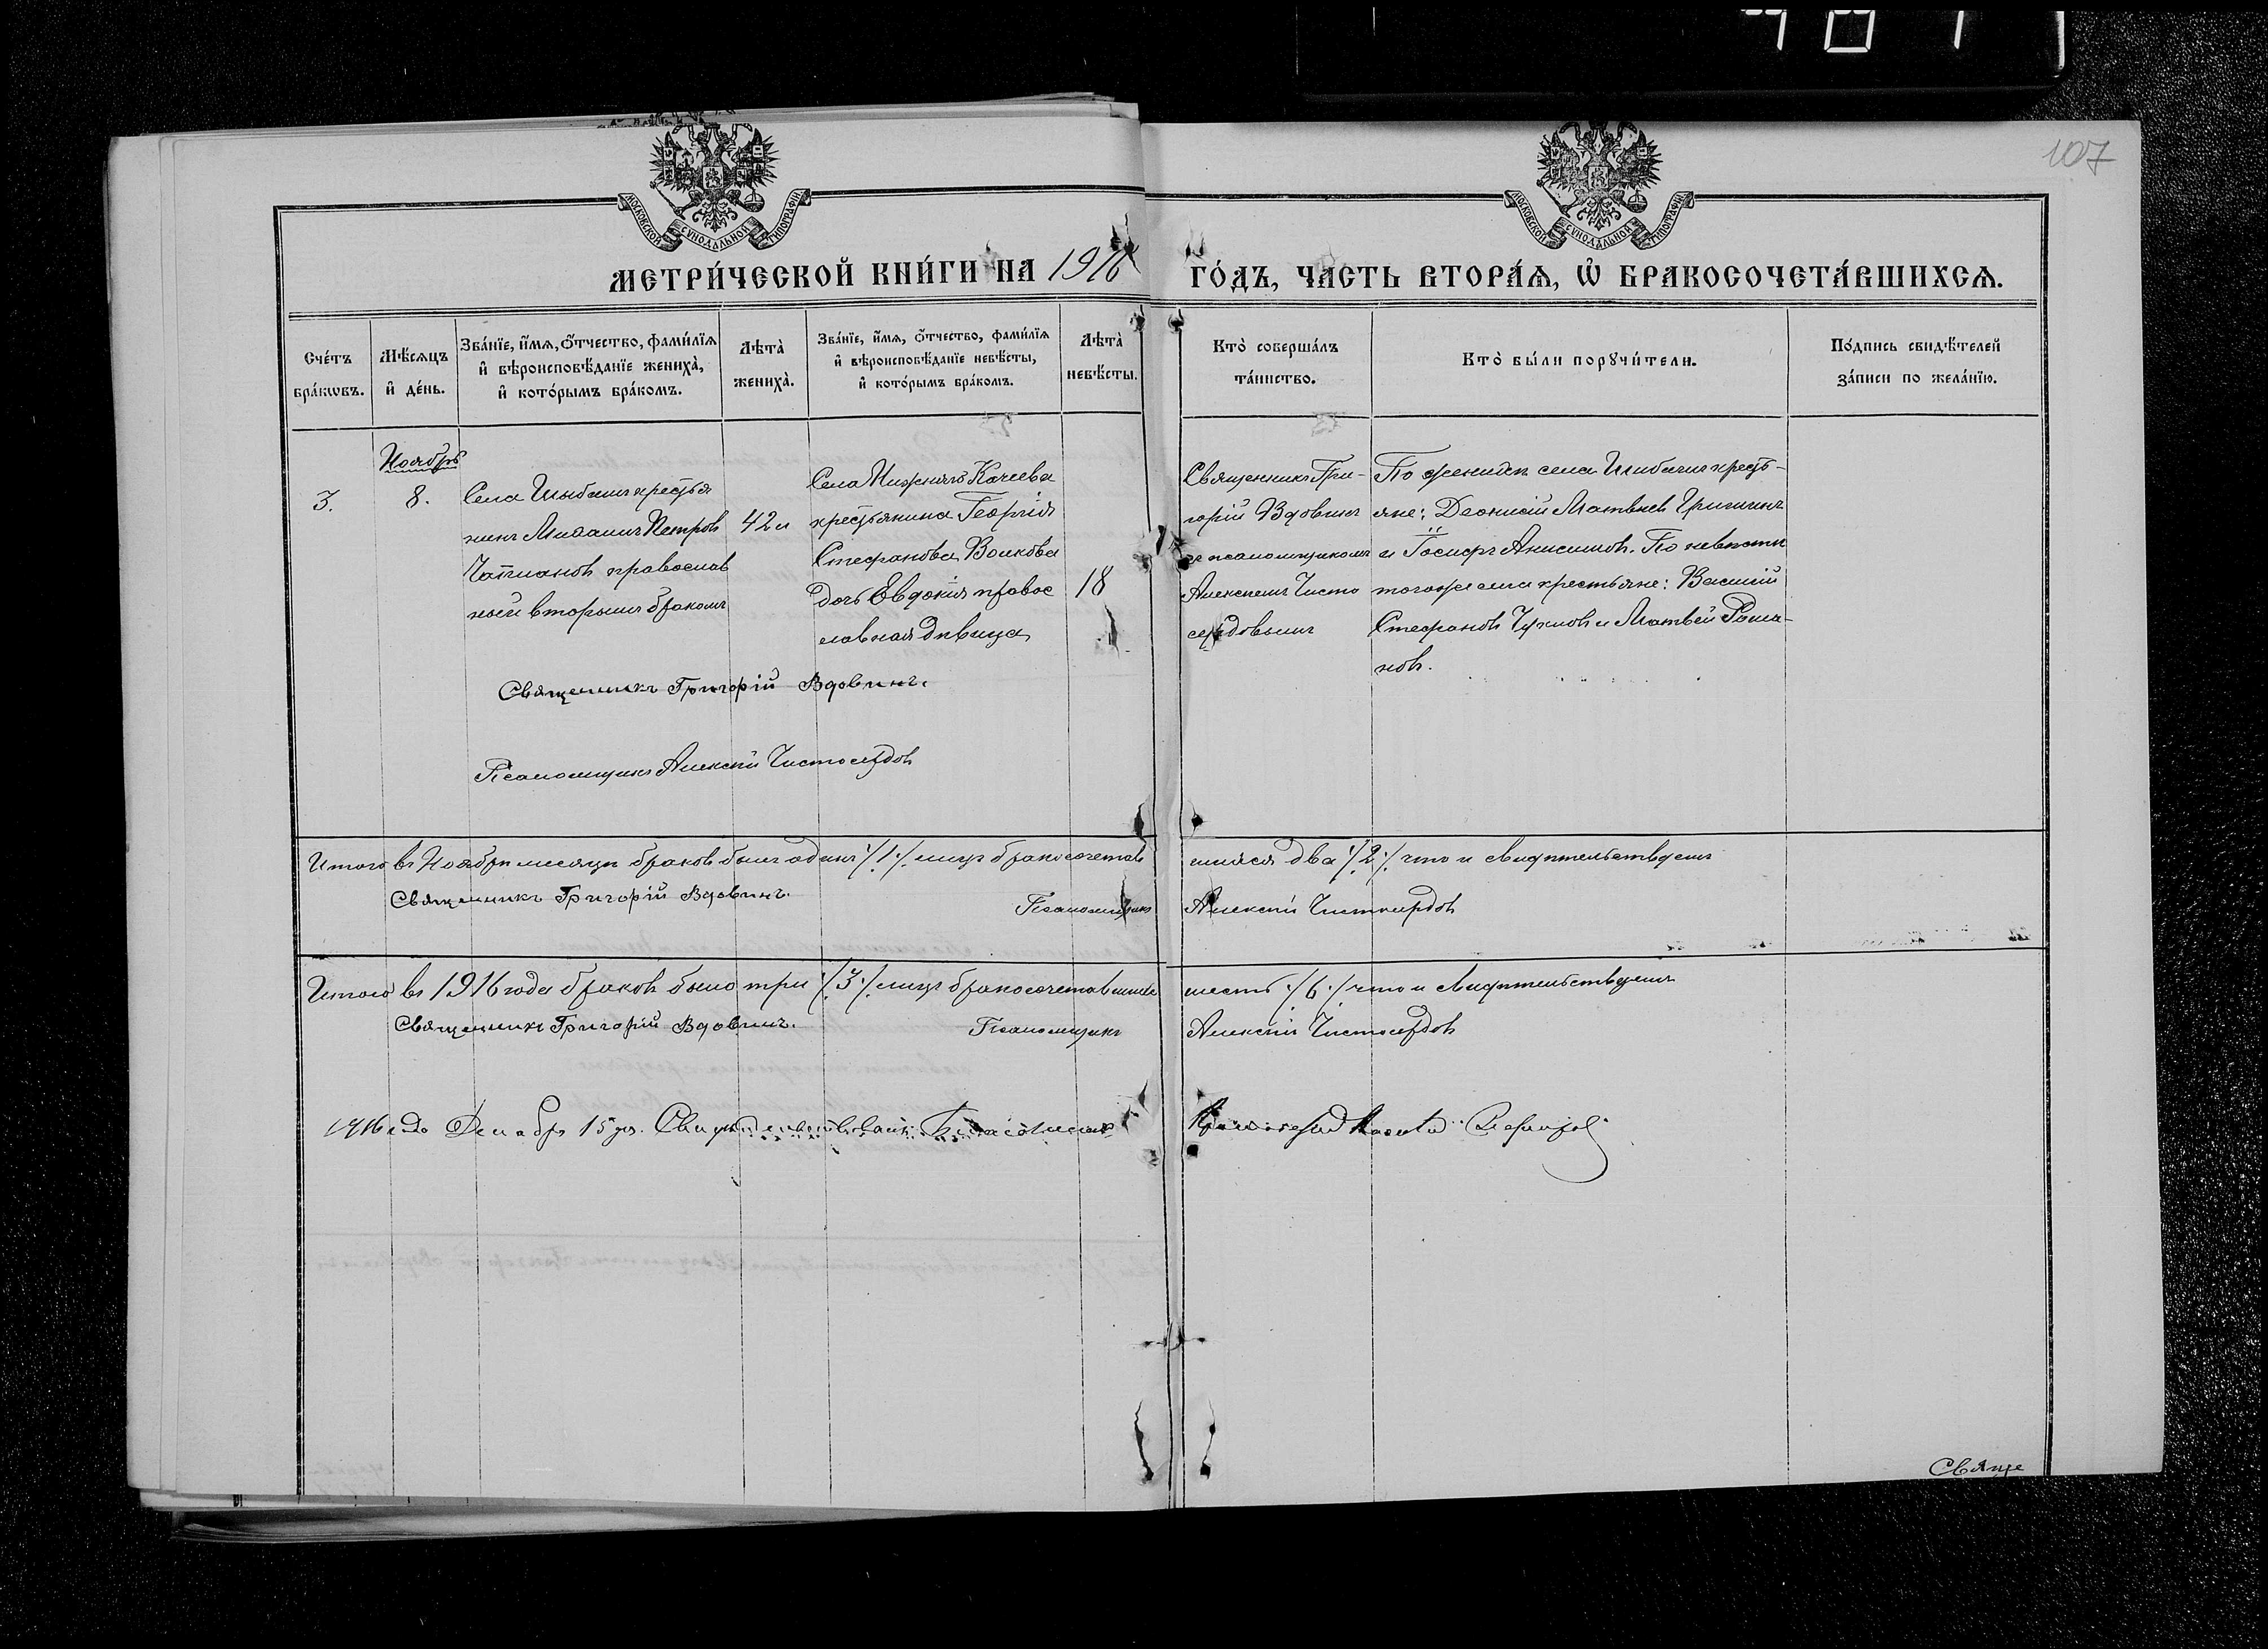 107
МЕТРИ́ЧЕСКОЙ КНИ́ГИ НА 1916 ГО́ДЪ, ЧА́СТЬ ВТОРА́Я, Ѡ БРАКОСОЧЕТА́ВШИХСЯ.
Сче́тъ бра́кѡвъ.
Мѣ́сяцъ и де́нь.
Зва́нїе, и́мя, ѻ́тчество, фами́лїя и вѣроисповѣ́данїе жениха̀, и кото́рымъ бра́комъ.
Лѣта̀ жениха̀.
Зва́нїе, и́мя, ѻ́тчество, фами́лїя и вѣроисповѣ́данїе невѣ́сты, и кото́рымъ бра́комъ.
Лѣта̀ невѣ́сты.
Кто̀ соверша́лъ та́инство.
Кто̀ бы́ли порꙋчи́тели.
По́дпись свидѣ́телей за́писи по жела́нїю.
3.
Ноябрь
8.
Села крестья
нинъ Петров
православ
ный вторымъ бракомъ
42
Села Качеева
крестьянина Георгія
Стефанова Волкова
дочь Евдокія правос
лавная дѣвица
18
Священникъ Гри-
горій Вдовинъ
съ псаломщикомъ
Алексѣемъ Чисто
сердовымъ
По женихѣ села кресть-
яне: Діонисій Матвѣевъ
и Іосифъ Анисимовъ. По невѣстѣ
тогоже села крестьяне: Василій
Стефановъ и Матвѣй Рома-
новъ.
Священникъ Григорій Вдовинъ.
Псаломщикъ Алексѣй Чистосердовъ
Итого въ Ноябрѣ мѣсяцѣ браковъ былъ одинъ /1/ лицъ бракосочетав шихся два /2/ что и свидѣтельствуемъ
Священникъ Григорій Вдовинъ.
Псаломщикъ Алексѣй Чистосердовъ
Итого въ 1916 года браковъ было три /3/ лицъ бракосочетавшихся шесть /6/ что и свидѣтельствуемъ
Священникъ Григорій Вдовинъ.
Псаломщикъ Алексѣй Чистосердовъ
1916 года Декабря 15 дня Благочинный
Свяще
МОСКОВСКОЙ СѴНОДАЛЬНОЙ ТИПОГРАФІИ
МОСКОВСКОЙ СѴНОДАЛЬНОЙ ТИПОГРАФІИ